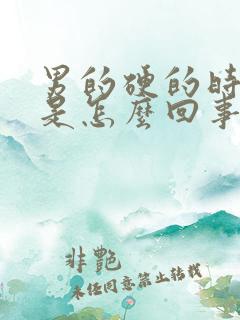 男的硬的时
是怎麼回事
非艷
未任同意禁止转载